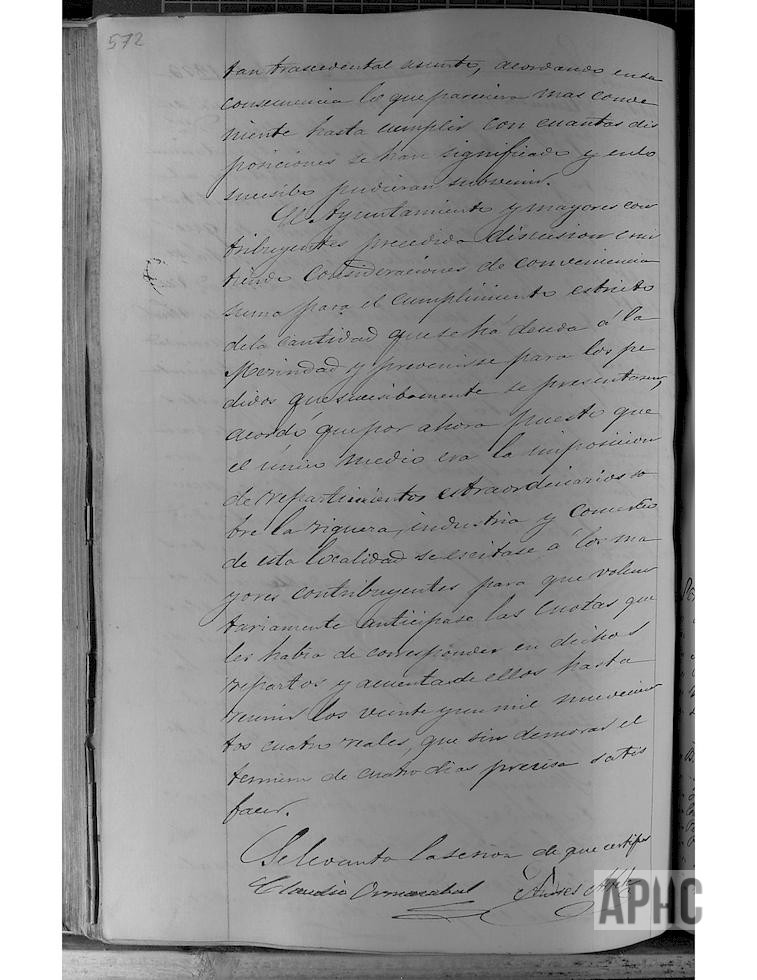 572
tan trascedental asunto, acordando en su
consecuencia lo que pareciera mas conve
niente hasta cumplir con cuantas dis
posiciones se han significado y en lo
sucesibo pudieran subvenir.
El Ayuntamiento y mayores con
tribuyentes precedida discusion emi
tiendo consideraciones de conveniencia
suma para el cumplimiento estricto
de la cantidad que se há deuda á la
Merindad y prevenirse para los pe
didos que sucesibamente se presentasen,
acordó que por ahora puesto que
el único medio era la imposicion
de repartimientos estraordinarios so
bre la riqueza, industria y comercio
de esta localidad se escitase á los ma
yores contribuyentes para que volun
tariamente anticipase las cuotas que
les habia de corresponder en dichos
repartos y acuenta de ellos hasta
reunir los veinte y un mil nuevecien
tos cuatro reales, que sin demorar el
termino de cuatro dias precisa satis
facer.
Se levanto la sesion de que certifico
Claudio Ormaechea Andres
APHC